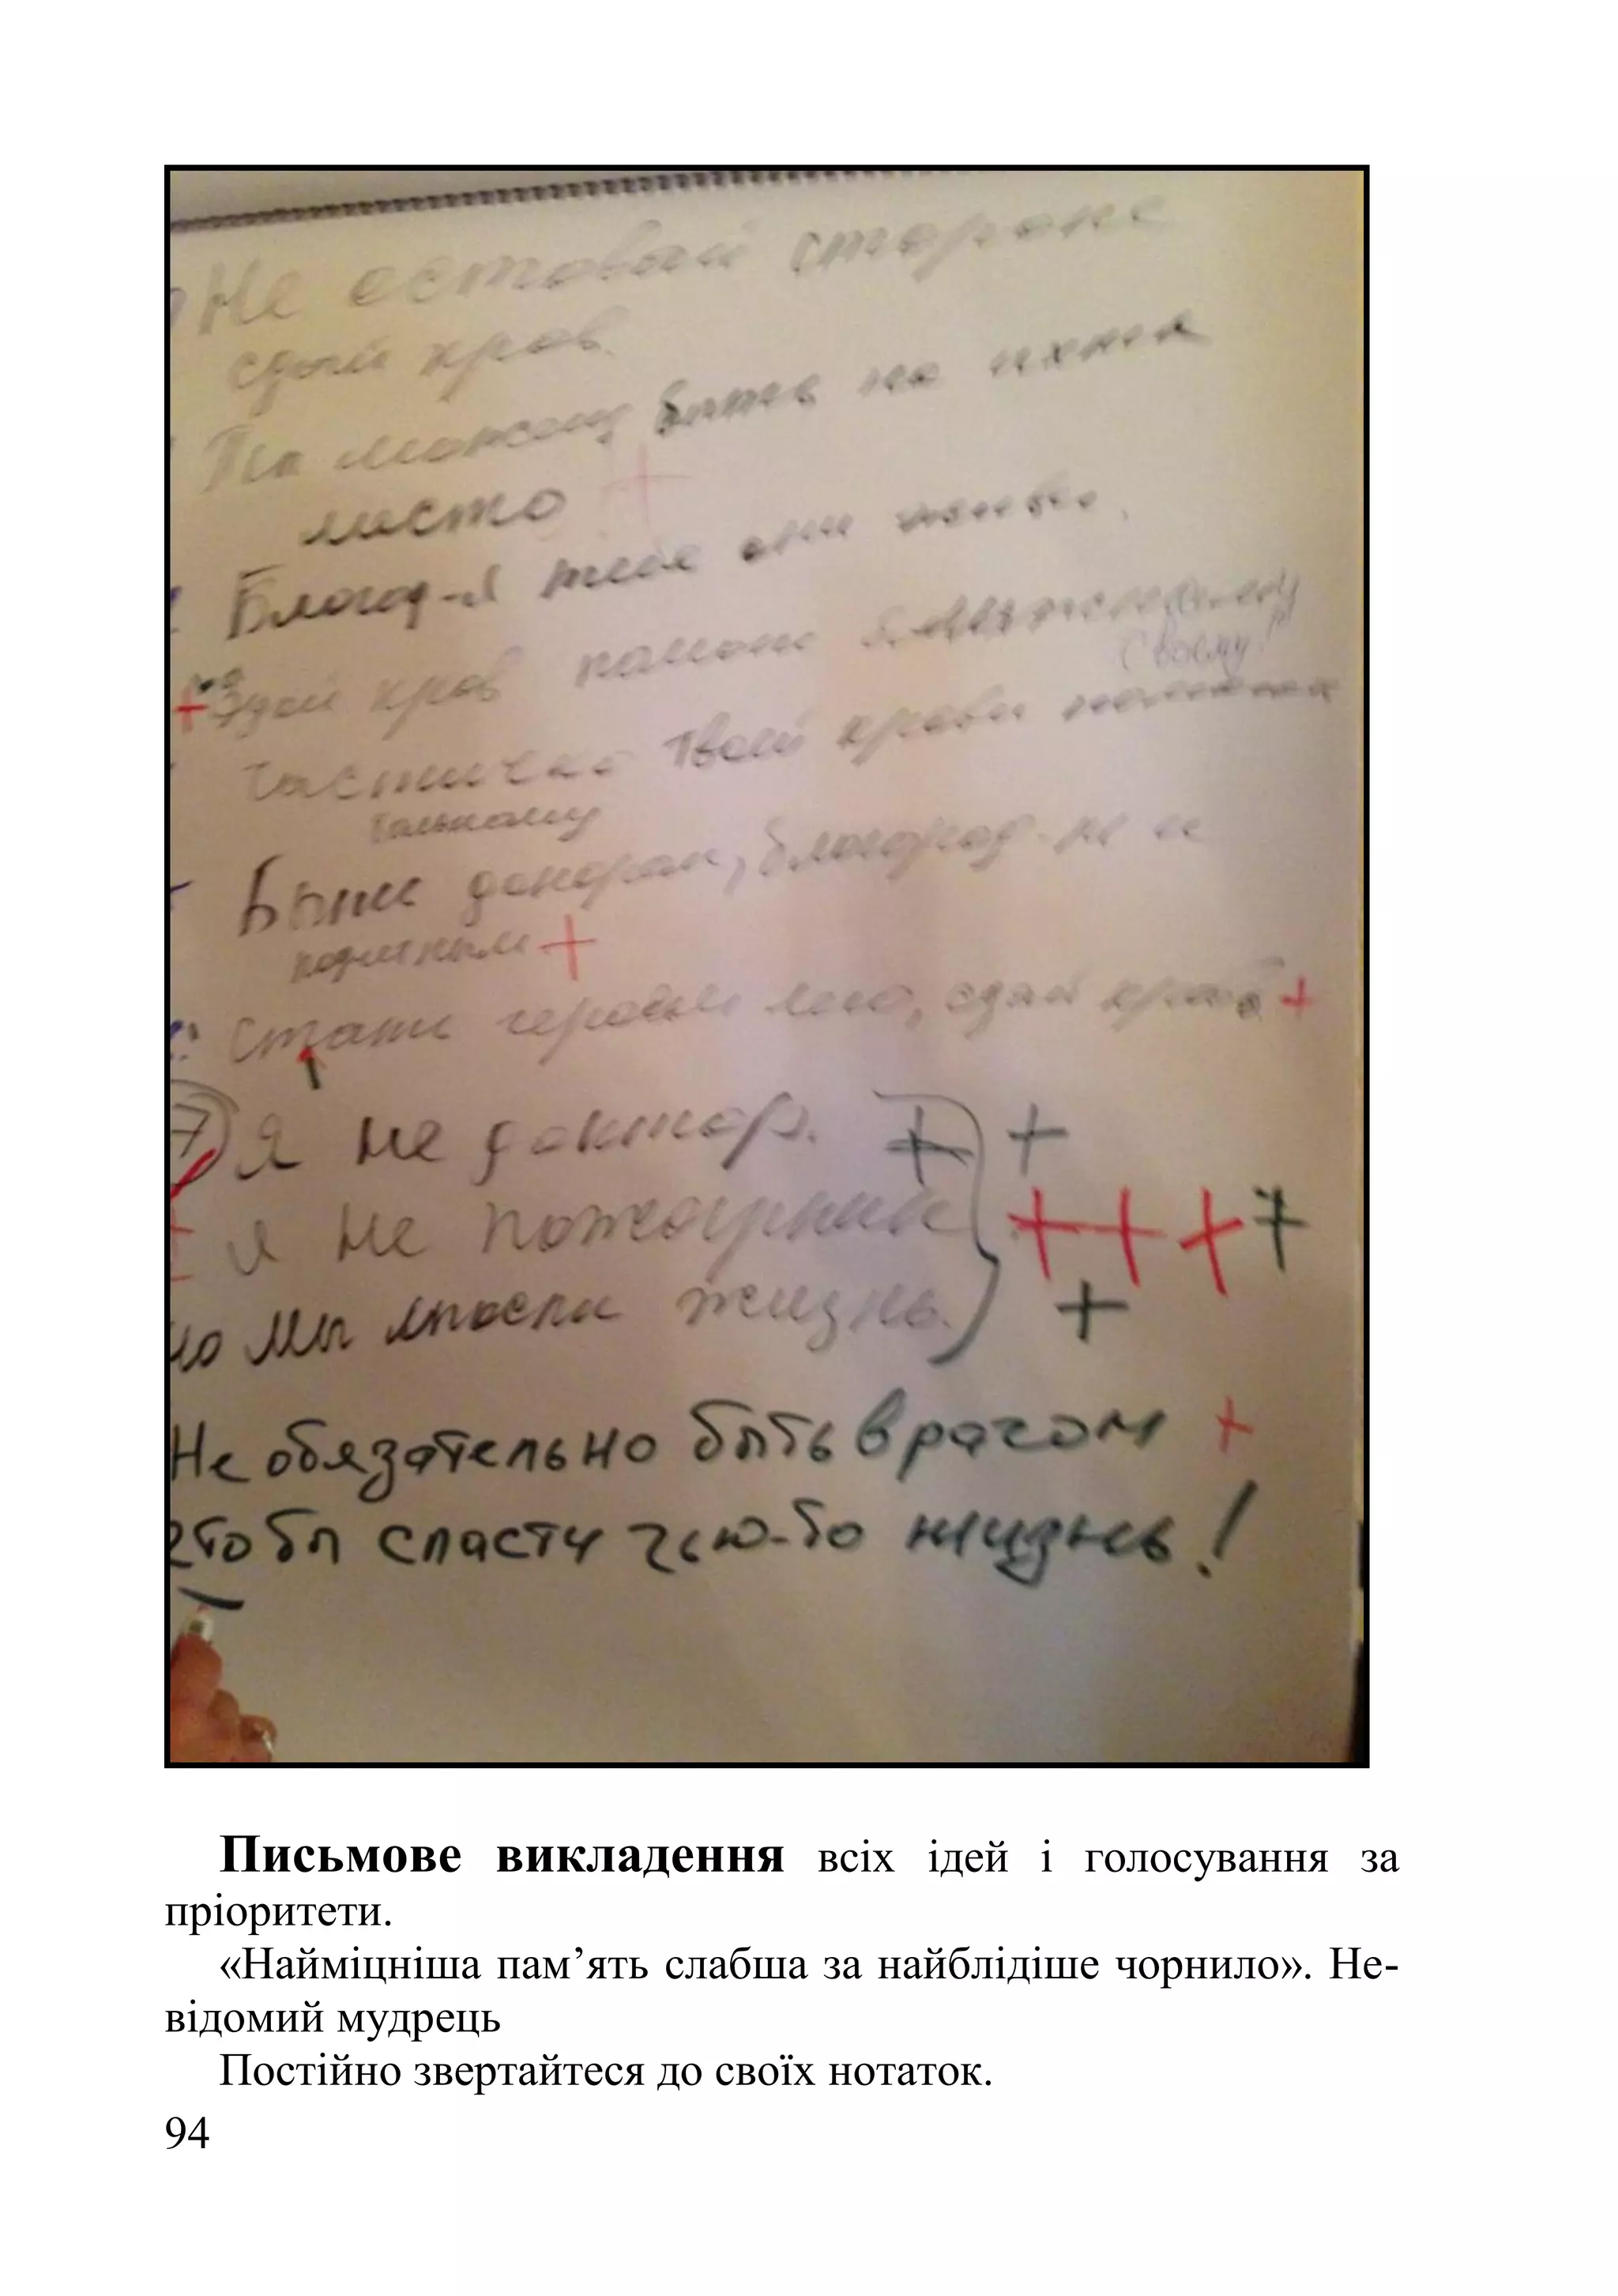 Не оставай стороне
сдай кров
Ты можеш быть на ихнем
место
Благод-я тебе они живы.
Здай кров
своему!"
частичка Твоей крови
больному
Быть донором, благород-не и
Стань героем, сдай кровь +
7 Я не доктор. + +
я не пожарник + + + +
но мы спасли жизнь. +
Не обязательно быть врагом +
чтобы спасти чью-то жизнь!
Письмове викладення всіх ідей і голосування за
пріоритети.
«Найміцніша пам’ять слабша за найблідіше чорнило». Не-
відомий мудрець
Постійно звертайтеся до своїх нотаток.
94